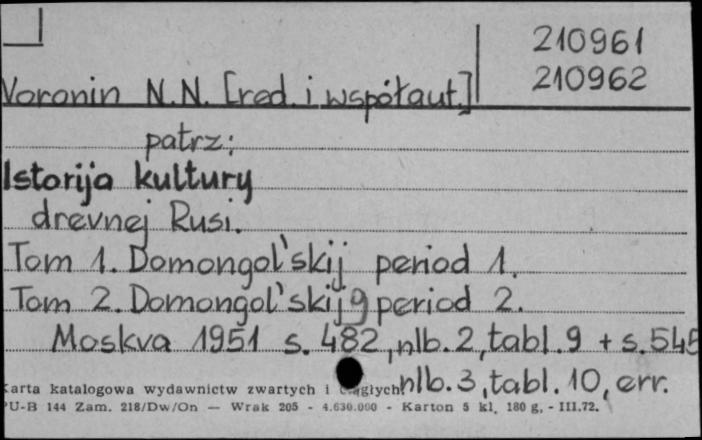 210961
210962
Voronin N.N. [red. i współaut.]
patrz:
Istorija kultury
drevnej Rusi.
Tom 1. Domongol'skij period 1.
Tom 2. Domongol'skij period 2.
Moskva 1951 s. 482, nlb. 2, tabl. 9 + s. 545
nlb. 3, tabl. 10, err.
Karta katalogowa wydawnictw zwartych i ciągłych
PU-B 144 Zam. 218/Dw/On — Wrak 205 - 4.630.000 - Karton 5 kl. 180 g. - III.72.